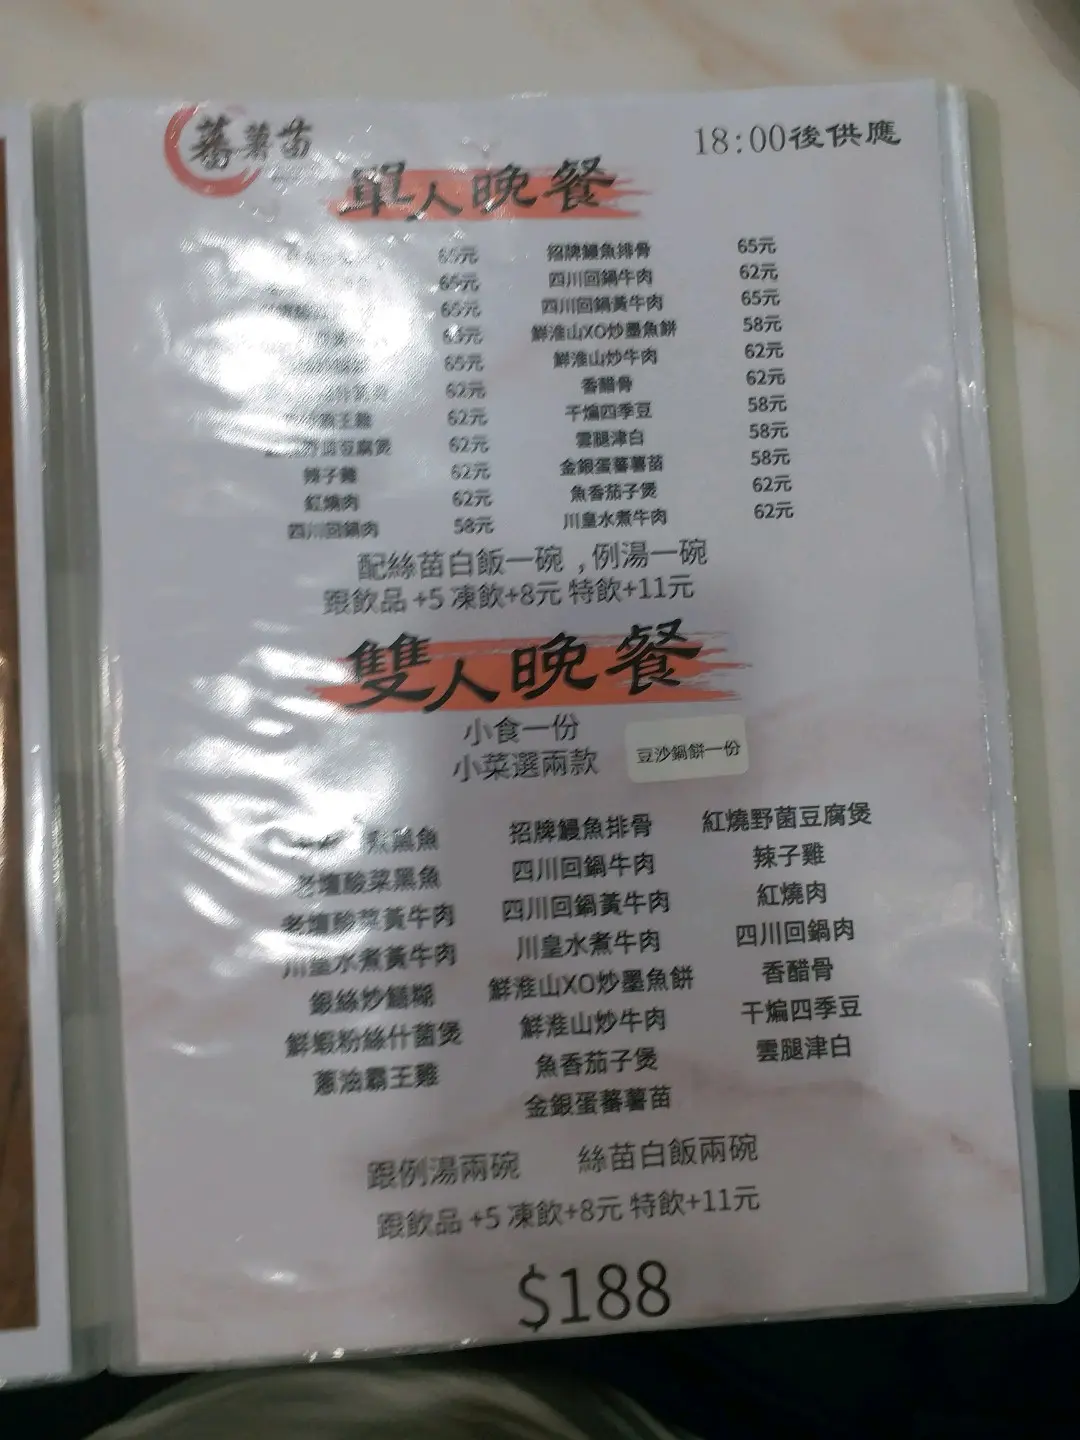 蕃薯苗
18:00後供應
單人晚餐
65元 招牌鰻魚排骨 65元
65元 四川回鍋牛肉 62元
65元 四川回鍋黃牛肉 65元
65元 鮮淮山XO炒墨魚餅 58元
65元 鮮淮山炒牛肉 62元
62元 香醋骨 62元
王雞 62元 干煸四季豆 58元
豆腐煲 62元 雲腿津白 58元
辣子雞 62元 金銀蛋蕃薯苗 58元
紅燒肉 62元 魚香茄子煲 62元
四川回鍋肉 58元 川皇水煮牛肉 62元
配絲苗白飯一碗 ,例湯一碗
跟飲品 +5 凍飲+8元 特飲+11元
雙人晚餐
小食一份
小菜選兩款 豆沙鍋餅一份
黑魚 招牌鰻魚排骨 紅燒野菌豆腐煲
老壇酸菜黑魚 四川回鍋牛肉 辣子雞
老壇酸菜黃牛肉 四川回鍋黃牛肉 紅燒肉
川皇水煮黃牛肉 川皇水煮牛肉 四川回鍋肉
銀絲炒鱔糊 鮮淮山XO炒墨魚餅 香醋骨
鮮蝦粉絲什菌煲 鮮淮山炒牛肉 干煸四季豆
蔥油霸王雞 魚香茄子煲 雲腿津白
金銀蛋蕃薯苗
跟例湯兩碗 絲苗白飯兩碗
跟飲品 +5 凍飲+8元 特飲+11元
$188